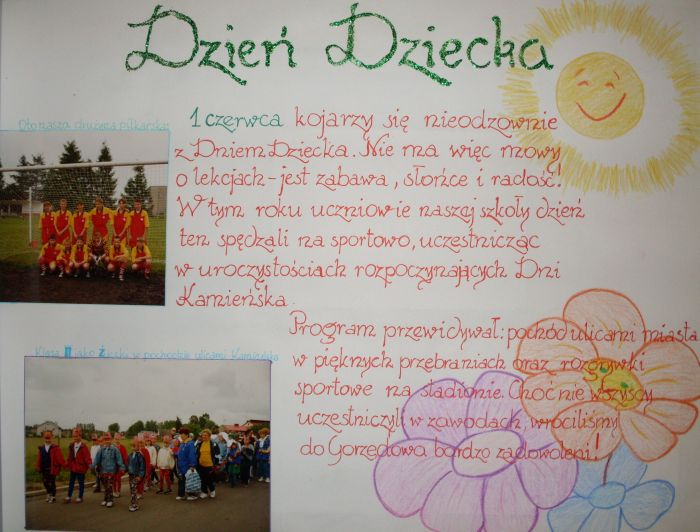 Dzień Dziecka
Oto nasza drużyna piłkarska
1 czerwca kojarzy się nieodzownie
z Dniem Dziecka. Nie ma więc mowy
o lekcjach - jest zabawa, słońce i radość!
W tym roku uczniowie naszej szkoły dzień
ten spędzali na sportowo, uczestnicząc
w uroczystościach rozpoczynających Dni
Kamieńska.
Program przewidywał: pochód ulicami miasta
w pięknych przebraniach oraz rozgrywki
sportowe na stadionie. Choć nie wszyscy
uczestniczyli w zawodach, wróciliśmy
do Gorzędowa bardzo zadowoleni!
Klasa II jako w pochodzie ulicami Kamieńska